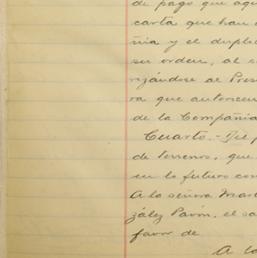 de pago que aqu
carta que han
ñia y el dupli
su orden, al
rizándose al Pres
ra que autoricen
de la Compañía
Cuarto.- Que
de terrenos, que
en lo futuro con
A la señora Mar
zález Pavón, el sa
favor de
A la